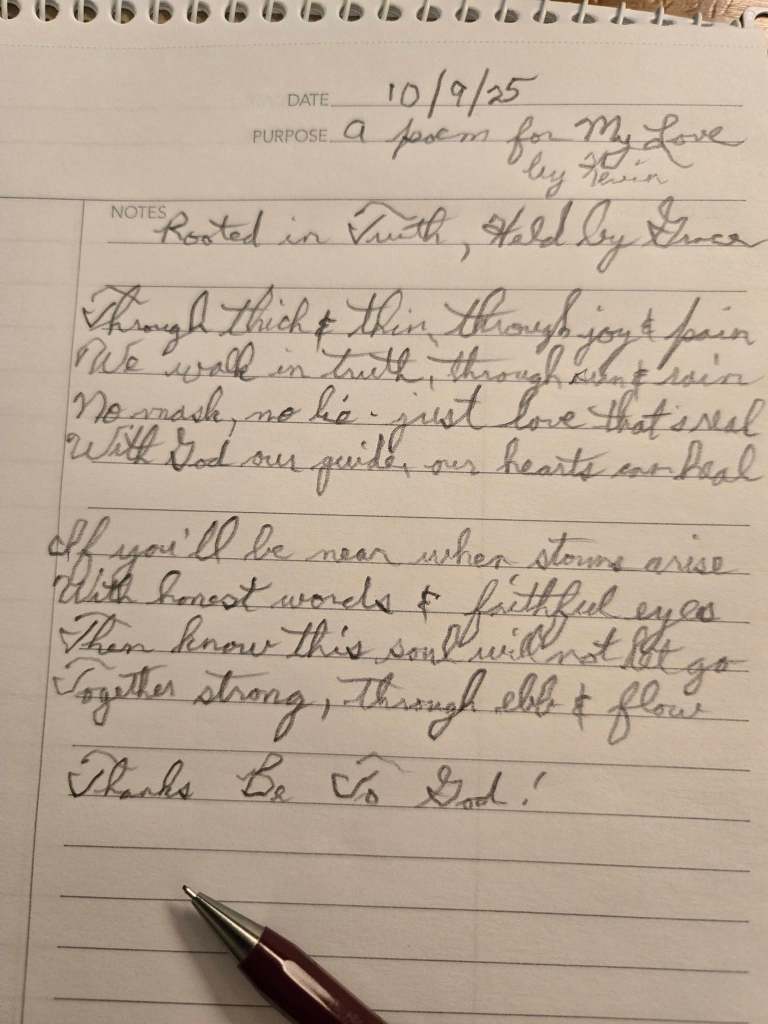 DATE 10/9/25
PURPOSE a poem for My Love
by Kevin
NOTES Rooted in Truth, Held by Grace
Through thick & thin, through joy & pain
We walk in truth, through sun & rain
No mask, no lie - just love that's real
With God our guide, our hearts can heal
If you'll be near when storms arise
With honest words & faithful eyes
Then know this soul will not let go
Together strong, through ebb & flow
Thanks Be To God!